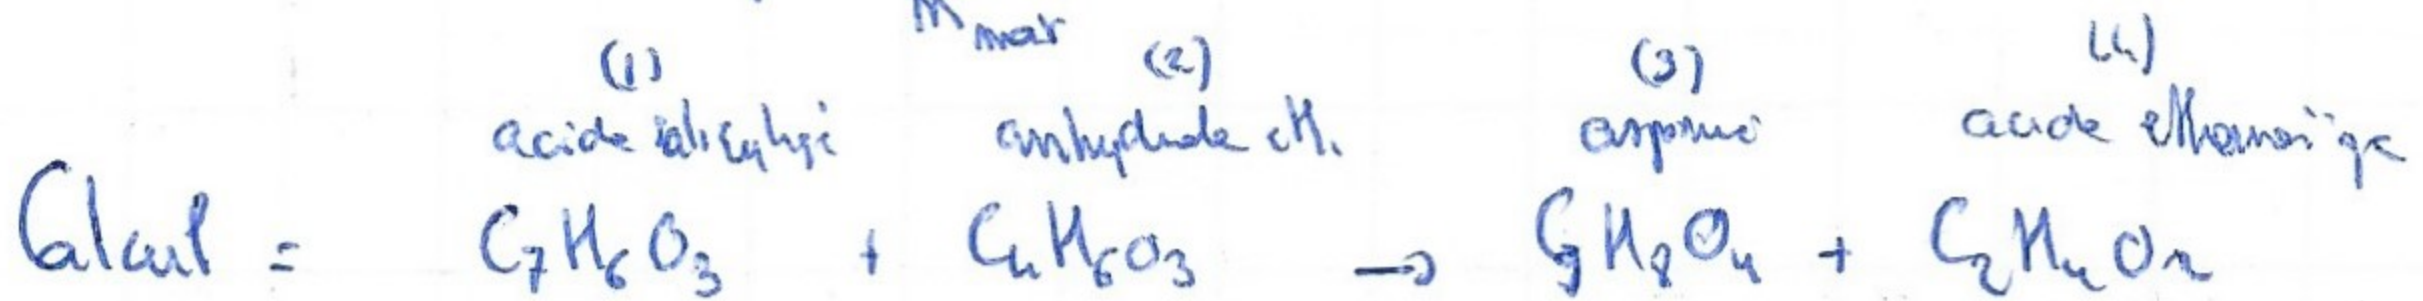 m max
(1) (2) (3) (4)
acide salicylique anhydride eth. aspirine acide éthanoïque
Calcul = C₇H₆O₃ + C₄H₆O₃ → C₉H₈O₄ + C₂H₄O₂